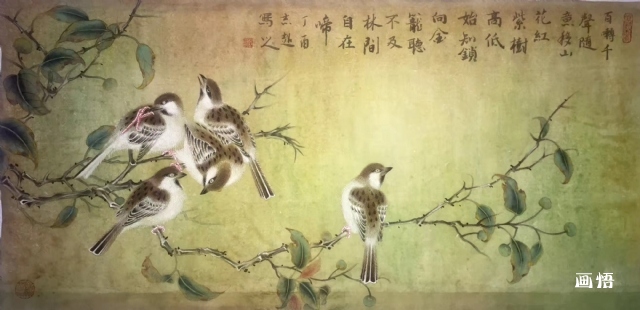 百囀千
聲隨
意移山
花紅
紫樹
高低
始知鎖
向金
籠聽
不及
林間
自在
啼
丁酉
寫之
画悟